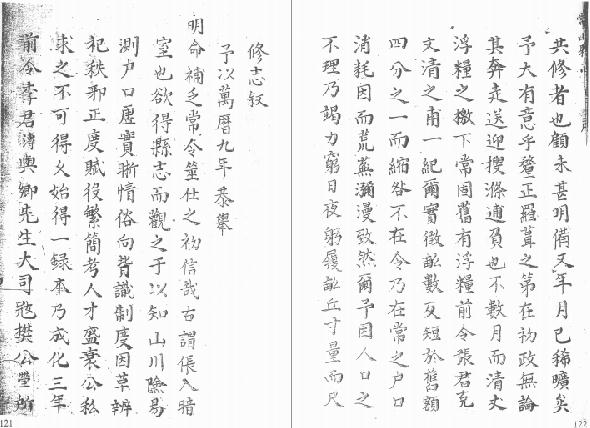 修志叙
予以萬曆九年恭奉
明命補乏常令筮仕之初信哉古謂倀入暗
室也欲得縣志而觀之于以知山川險易
測户口虛實斷情俗向背識制度因革辨
祀秩邪正度賦役繁簡考人才盛衰公私
求之不可得久始得一録本乃成化三年
前令李君溥與卿先生大司寇樊公瑩所
共修者也顧未甚明備又年月已稀曠矣
予大有意乎釐正羅葺之第在初政無論
其奔走送迎搜滌逋負也不數月而清丈
浮糧之檄下常固舊有浮糧前令張君克
文清之甫一紀爾實徵畝數反短於舊額
四分之一而縮咎不在令乃在常之户口
消耗因而荒蕪瀰漫致然爾予因人口之
不理乃竭力窮日夜躬履畝丘寸量而尺
121
122